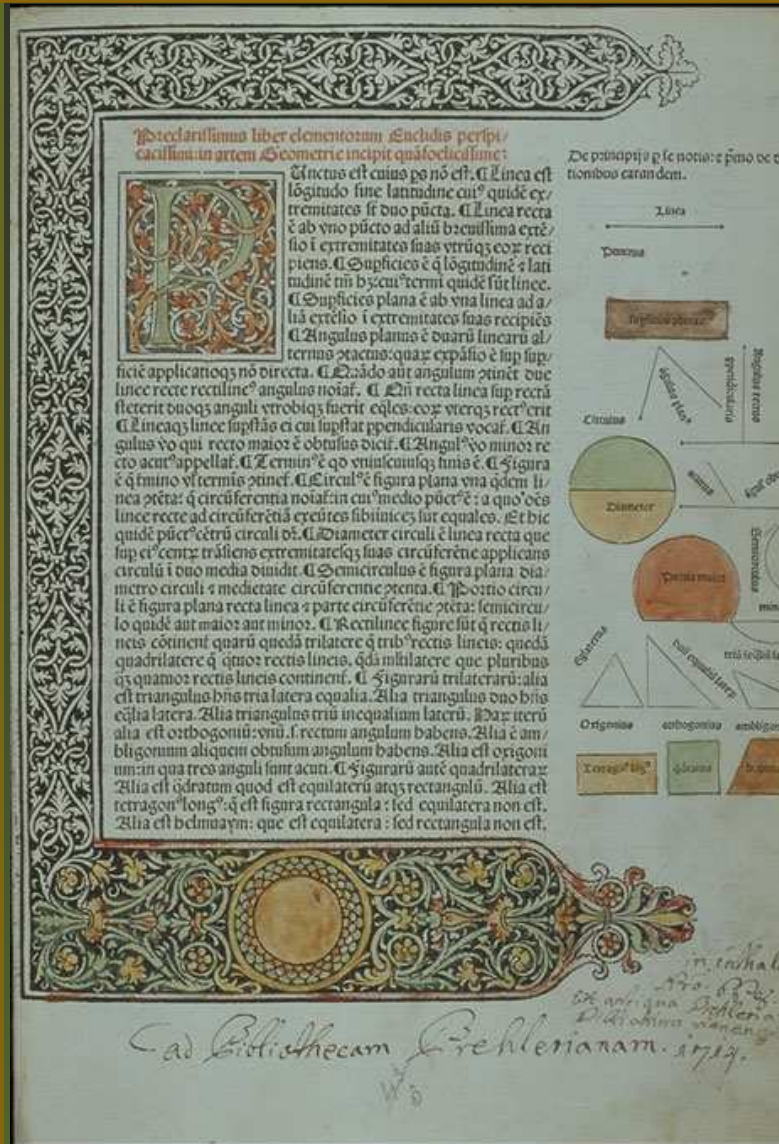 Preclarissimus liber elementorum Euclidis perspi/
cacissimi: in artem Geometrie incipit quãfoelicissime:
Punctus est cuius ps nõ est. ¶ Linea est
lõgitudo sine latitudine cuiꝰ quidẽ ex/
tremitates sũt duo pũcta. ¶ Linea recta
ẽ ab vno pũcto ad aliũ breuissima extẽ/
sio ĩ extremitates suas vtrũqꝫ eoꝝ reci
piens. ¶ Supficies ẽ q̃ lõgitudinẽ ⁊ lati
tudinẽ tm̃ hꝫ: cuiꝰ termi quidẽ sũt linee.
¶ Supficies plana ẽ ab vna linea ad a/
liã extẽsio ĩ extremitates suas recipiẽs
¶ Angulus planus ẽ duarũ linearũ al/
ternus ꝯtactus: quaꝝ expãsio ẽ sup sup/
ficiẽ applicatioqꝫ nõ directa. ¶ Quãdo aũt angulum ꝯtinẽt due
linee recte rectilineꝰ angulus noĩat̃. ¶ Qñ recta linea sup rectã
steterit duoqꝫ anguli vtrobiqꝫ fuerit eq̃les: eoꝝ vterqꝫ rectꝰ erit
¶ Lineaqꝫ linee supstãs ei cui supstat ppendicularis vocat̃. ¶ An
gulus vo qui recto maior ẽ obtusus dicit̃. ¶ Angulꝰ vo minor re
cto acutꝰ appellat̃. ¶ Terminꝰ ẽ qd vniuscuiusqꝫ finis ẽ. ¶ Figura
ẽ q̃ tmino vl terminis ꝯtinet̃. ¶ Circulꝰ ẽ figura plana vna qdem li/
nea ꝯtẽta: q̃ circũferentia noĩat̃: in cuiꝰ medio pũctꝰ ẽ: a quo oẽs
linee recte ad circũferẽtiã exeũtes sibiinuicẽ sũt equales. Et hic
quidẽ pũctꝰ cẽtrũ circuli dr̃. ¶ Diameter circuli ẽ linea recta que
sup eiꝰ centꝝ trãsiens extremitatesqꝫ suas circũferẽtie applicans
circulũ ĩ duo media diuidit. ¶ Semicirculus ẽ figura plana dia/
metro circuli ⁊ medietate circũferentie ꝯtenta. ¶ Portio circu/
li ẽ figura plana recta linea ⁊ parte circũferẽtie ꝯtẽta: semicircu/
lo quidẽ aut maior aut minor. ¶ Rectilinee figure sũt q̃ rectis li/
neis cõtinent̃ quarũ quedã trilatere q̃ tribꝰ rectis lineis: quedã
quadrilatere q̃ q̃tuor rectis lineis. q̃dã mltilatere que pluribus
qꝫ quatuor rectis lineis continent̃. ¶ Figurarũ trilaterarũ: alia
est triangulus hñs tria latera equalia. Alia triangulus duo hñs
eq̃lia latera. Alia triangulus triũ inequalium laterũ. Haꝝ iterũ
alia est orthogoniũ: vnũ.s. rectum angulum habens. Alia ẽ am/
bligonium aliquem obtusum angulum habens. Alia est oxigoni
um: in qua tres anguli sunt acuti. ¶ Figurarũ autẽ quadrilateraꝝ
Alia est q̃dratum quod est equilaterũ atqꝫ rectangulũ. Alia est
tetragonꝰ longꝰ: q̃ est figura rectangula: sed equilatera non est.
Alia est helmuaym: que est equilatera: sed rectangula non est.
De principijs p se notis: ⁊ pmo de
tionibus earandem.
Linea
Punctus
superficies plana
Angulus rectus
ppendicularis
angulus planꝰ
Circulus
acutus
Diameter
Semicirculus
Portio maior
Eq̃laterus
duũ equaliũ laterũ
Oxigonius orthogonius ambligon
Tetragonꝰ lõgꝰ
q̃dratus
ad Bibliothecam Prehlerianam. 1714.